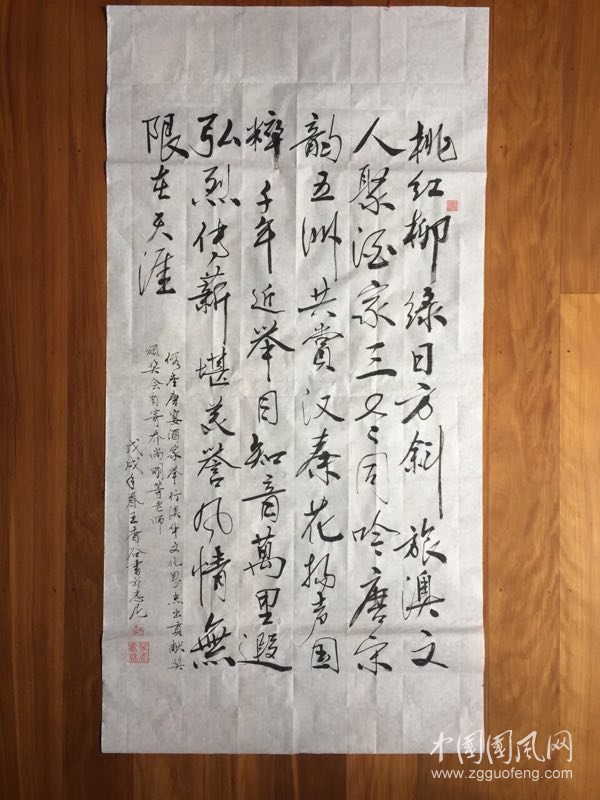 桃红柳绿日方斜旅澳文
人聚酒家三同吟唐宋
韵五洲共赏汉秦花扬声国
粹千年近举目知音萬里遐
弘烈传薪堪美誉风情無
限在天涯
唐宴酒家举行澳华文化界杰出贡献奖
颁奖会寄乔尚明等老师
戊戌年春王香谷书於悉尼
中国國风网
www.zgguofeng.com